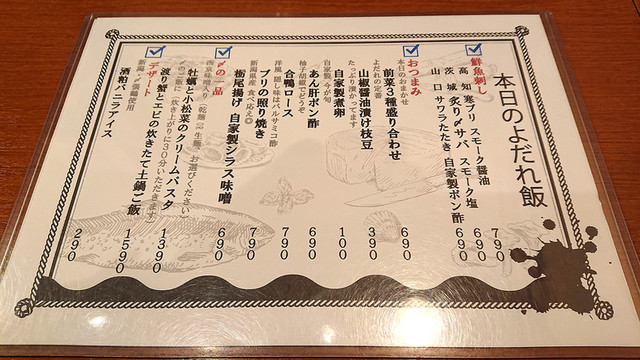 本日のよだれ飯
鮮魚刺し
高知 寒ブリ スモーク醤油 790
茨城 炙り〆サバ スモーク塩 690
山口 サワラたたき 自家製ポン酢 690
おつまみ
本日のおまかせ
前菜3種盛り合わせ 690
よだれの定番
山椒醤油漬け枝豆 390
たっぷり漬かってます
自家製煮卵 100
自家製、今が旬
あん肝ポン酢 690
柚子胡椒でどうぞ
合鴨ロース 790
洋風、隠し味はバルサミコ酢
ブリの照り焼き 790
新潟県産 食べ応え◎
栃尾揚げ 自家製シラス味噌 690
〆の一品
西京味噌入り(乾麺 生麺 お選びください)
牡蠣と小松菜のクリームパスタ 1390
〆のご飯に(炊き上がりに30分いただきます)
渡り蟹とエビの炊きたて土鍋ご飯 1590
デザート
新潟 〆張鶴使用
酒粕バニラアイス 290